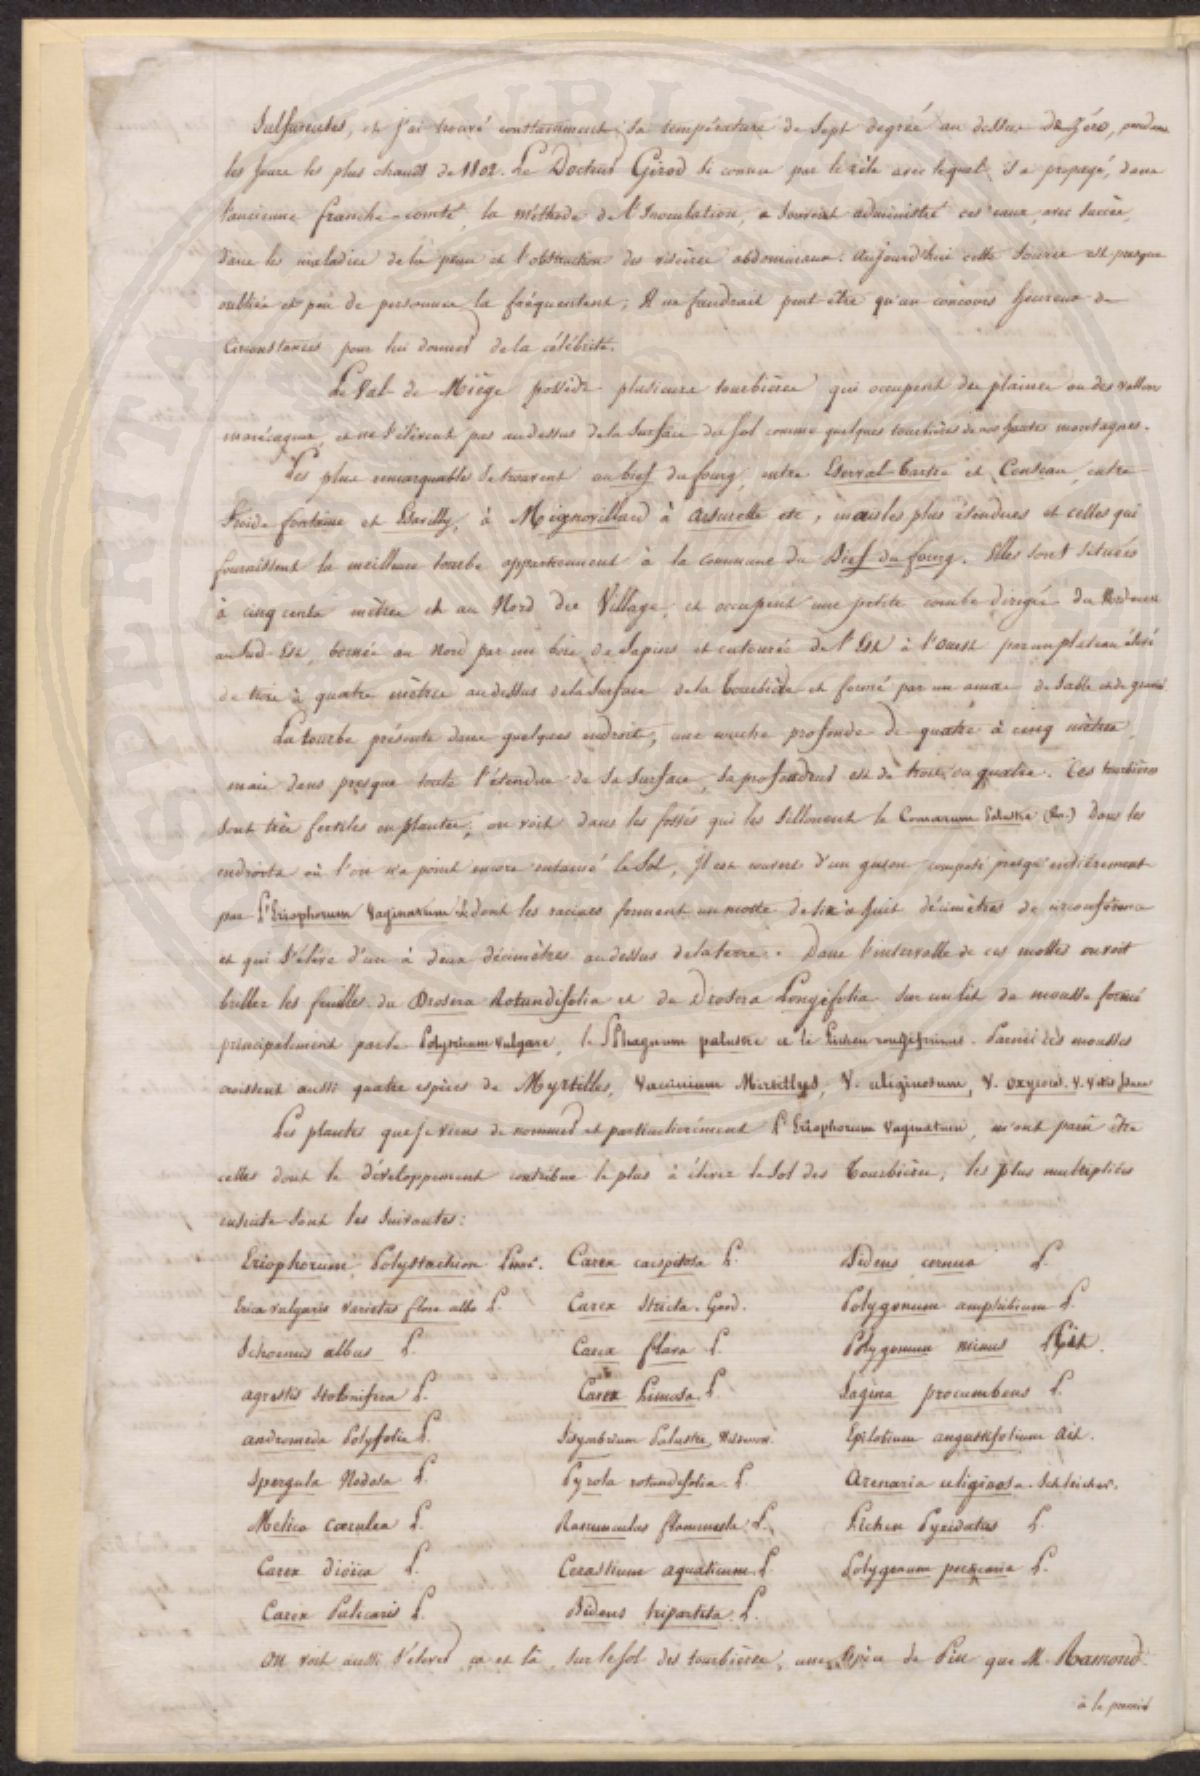 Sulfureuses, et j'ai trouvé constamment sa température de sept degrés au dessus de Zéro, pendant
les jours les plus chauds de 1802. Le Docteur Girod si connu par le zèle avec lequel il a propagé, dans
l'ancienne franche-comté, la méthode de l'Inoculation, a souvent administré ces eaux, avec succès,
dans les maladies de la peau et l'obstruction des viscères abdominaux. Aujourd'hui cette source est presque
oubliée et peu de personnes la fréquentent; Il ne faudrait peut-être qu'un concours heureux de
circonstances pour lui donner de la célébrité.
Le Val de Miège possède plusieurs tourbières qui occupent des plaines ou des vallons
marécageux, et ne s'élèvent pas au dessus de la surface du sol comme quelques tourbières de nos hautes montagnes.
Les plus remarquables se trouvent au bief du fourg, entre Eserval-Tartre et Conteau, entre
Froide fontaine et Esavilly, à Mignovillard à Arsurette etc, mais les plus étendues et celles qui
fournissent la meilleure tourbe appartiennent à la commune du Bief du fourg. Elles sont situées
à cinq cents mètres et au Nord du Village, et occupent une petite combe dirigée du Nord ouest
au Sud-Est, bornée au Nord par un bois de Sapins et entourée de l'Est à l'ouest par un plateau élevé
de trois à quatre mètres au dessus de la surface de la tourbière et formé par un amas de sable et de gravier.
La tourbe présente dans quelques endroits, une couche profonde de quatre à cinq mètres
mais dans presque toute l'étendue de sa surface, sa profondeur est de trois ou quatre. Ces tourbières
sont très fertiles en plantes; on voit dans les fossés qui les sillonnent le Comarum Palustre (Lin.) Dans les
endroits où l'on n'a point encore entamé le sol, Il est couvert d'un gason composé presqu'entièrement
par l'Eriophorum Vaginatum L. dont les racines forment un motte de six à huit décimètres de circonférence
et qui s'élève d'un à deux décimètres au dessus de la terre. Dans l'intervalle de ces mottes on voit
briller les feuilles du Drosera Rotundifolia et du Drosera Longifolia sur un lit de mousse formé
principalement par le Polytricum vulgare, le Sphagnum palustre et le Lichen rangiferinus. Parmi ces mousses
croissent aussi quatre espèces de Myrtilles, Vaccinium Mirtillus, V. uliginosum, V. oxycoccos. V. Vitis Idaea
Les plantes que je viens de nommer et particulièrement l'Eriophorum Vaginatum, m'ont paru être
celles dont le développement contribue le plus à élever le sol des Tourbières; les plus multipliées
ensuite sont les suivantes:
Eriophorum Polystachion Linné. Carex caespitosa L. Bidens cernua L.
Erica vulgaris varietas flore albo L. Carex Stricta. Good. Polygonum amphibium L.
Schoenus albus L. Carex flava L. Polygonum minus Ait.
agrostis Stolonifera L. Carex Limosa. L. Sagina procumbens L.
andromeda Polyfolia L. Sisymbrium Palustre, Epilobium angustifolium Ait.
Spergula Nodosa L. Pyrola rotundifolia. L. Arenaria uliginosa. Schleicher.
Melica Caerulea L. Ranunculus flammula L. Lichen Pyxidatus L.
Carex dioica L. Cerastium aquaticum. L. Polygonum persicaria L.
Carex Pulicaris L. Bidens tripartita L.
On voit aussi s'élever çà et là, sur le sol des tourbières, une espèce de Pin que M. Ramond
à le premier